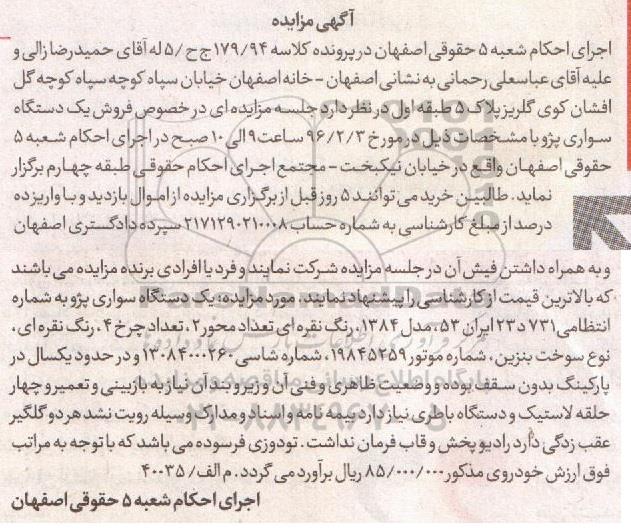 آگهی مزایده
اجرای احکام شعبه ۵ حقوقی اصفهان در پرونده کلاسه ۱۷۹/۹۴ ج ح /۵ له آقای حمیدرضا زالی و
علیه آقای عباسعلی رحمانی به نشانی اصفهان - خانه اصفهان خیابان سپاه کوچه سپاه کوچه گل
افشان کوی گلریز پلاک ۵ طبقه اول در نظر دارد جلسه مزایده ای در خصوص فروش یک دستگاه
سواری پژو با مشخصات ذیل در مورخ ۹۶/۲/۳ ساعت ۹ الی ۱۰ صبح در اجرای احکام شعبه ۵
حقوقی اصفهان واقع در خیابان نیکبخت - مجتمع اجرای احکام حقوقی طبقه چهارم برگزار
نماید. طالبین خرید می توانند ۵ روز قبل از برگزاری مزایده از اموال بازدید و با واریز ده
درصد از مبلغ کارشناسی به شماره حساب ۲۱۷۱۲۹۰۲۱۰۰۰۸ سپرده دادگستری اصفهان
و به همراه داشتن فیش آن در جلسه مزایده شرکت نمایند و فرد یا افرادی برنده مزایده می باشند
که بالاترین قیمت از کارشناسی را پیشنهاد نمایند. مورد مزایده: یک دستگاه سواری پژو به شماره
انتظامی ۷۳۱ د ۲۳ ایران ۵۳، مدل ۱۳۸۴، رنگ نقره ای تعداد محور ۲، تعداد چرخ ۴، رنگ نقره ای،
نوع سوخت بنزین، شماره موتور ۱۹۸۴۵۲۵۹، شماره شاسی ۱۳۰۸۴۰۰۰۲۶۰ و در حدود یکسال در
پارکینگ بدون سقف بوده و وضعیت ظاهری و فنی آن و زیر و بند آن نیاز به بازبینی و تعمیر و چهار
حلقه لاستیک و دستگاه باطری نیاز دارد بیمه نامه و اسناد و مدارک وسیله رویت نشد هر دو گلگیر
عقب زدگی دارد رادیو پخش و قاب فرمان نداشت. تودوزی فرسوده می باشد که با توجه به مراتب
فوق ارزش خودروی مذکور ۸۵/۰۰۰/۰۰۰ ریال برآورد می گردد. م الف/ ۴۰۰۳۵
اجرای احکام شعبه ۵ حقوقی اصفهان
ParsNamadData
پایگاه اطلاع رسانی مناقصه و مزایده